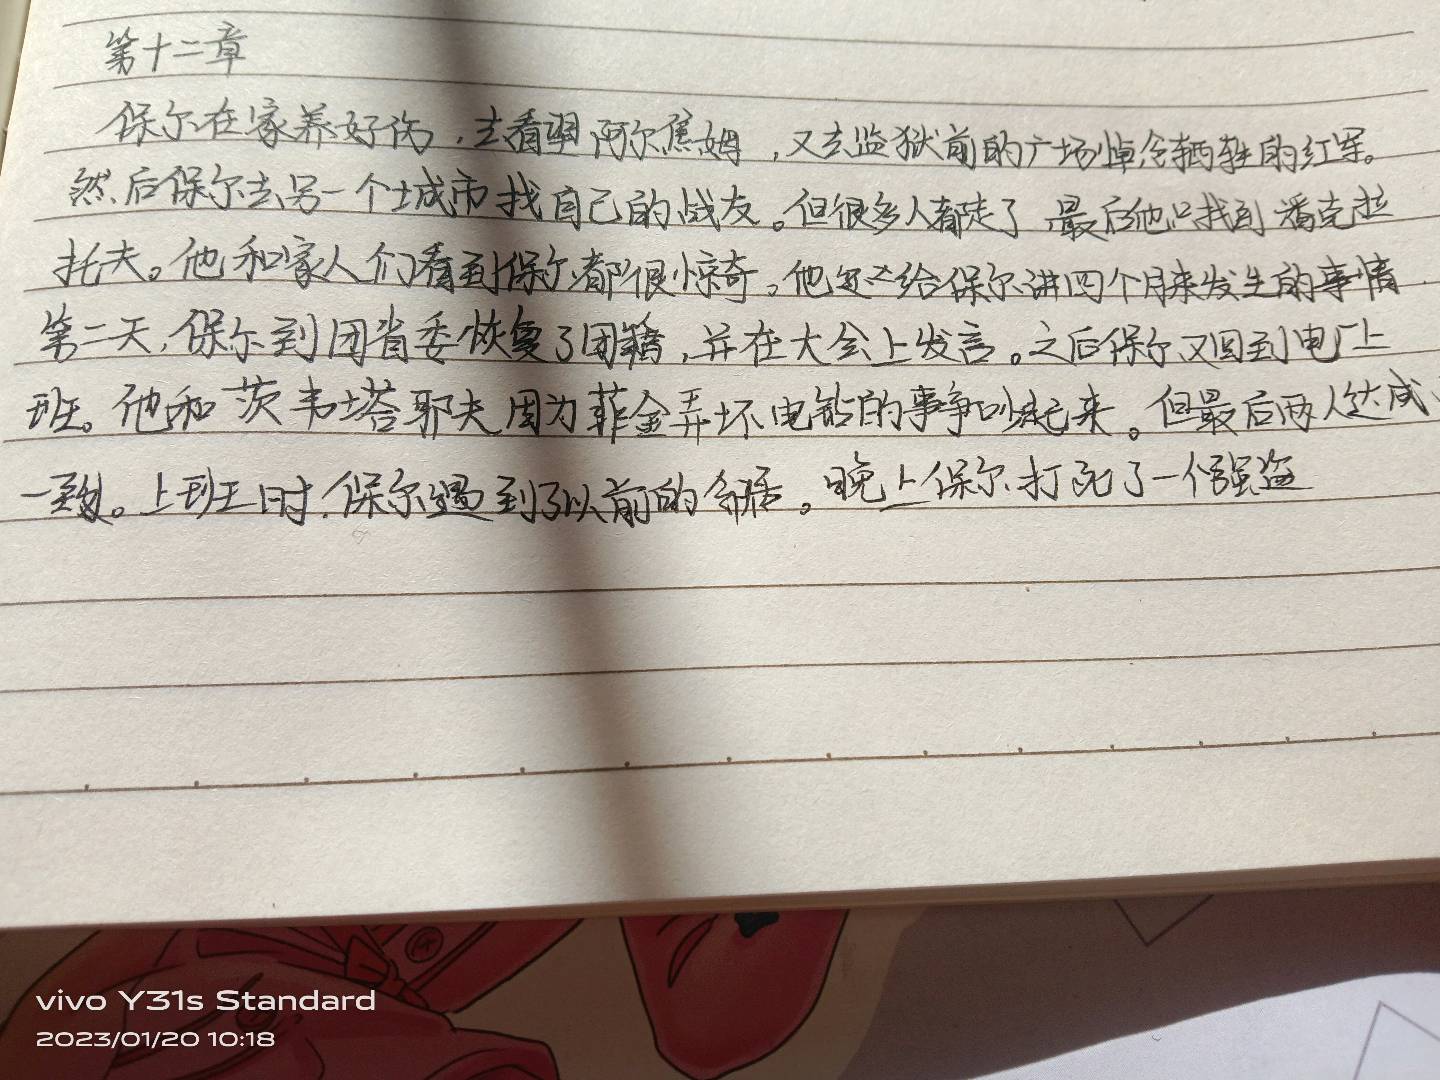 第十二章
保尔在家养好伤，去看望阿尔焦姆，又去监狱前的广场悼念牺牲的红军。
然后保尔去另一个城市找自己的战友。但很多人都走了 最后他只找到潘克拉
托夫。他和家人们看到保尔都很惊奇。他还给保尔讲四个月来发生的事情
第二天，保尔到团省委恢复了团籍，并在大会上发言。之后保尔又回到电厂上
班。他和茨韦塔耶夫因为菲金弄坏电钻的事争吵起来。但最后两人达成
一致。上班时，保尔遇到了以前的。晚上保尔打死了一个强盗
vivo Y31s Standard
2023/01/20 10:18